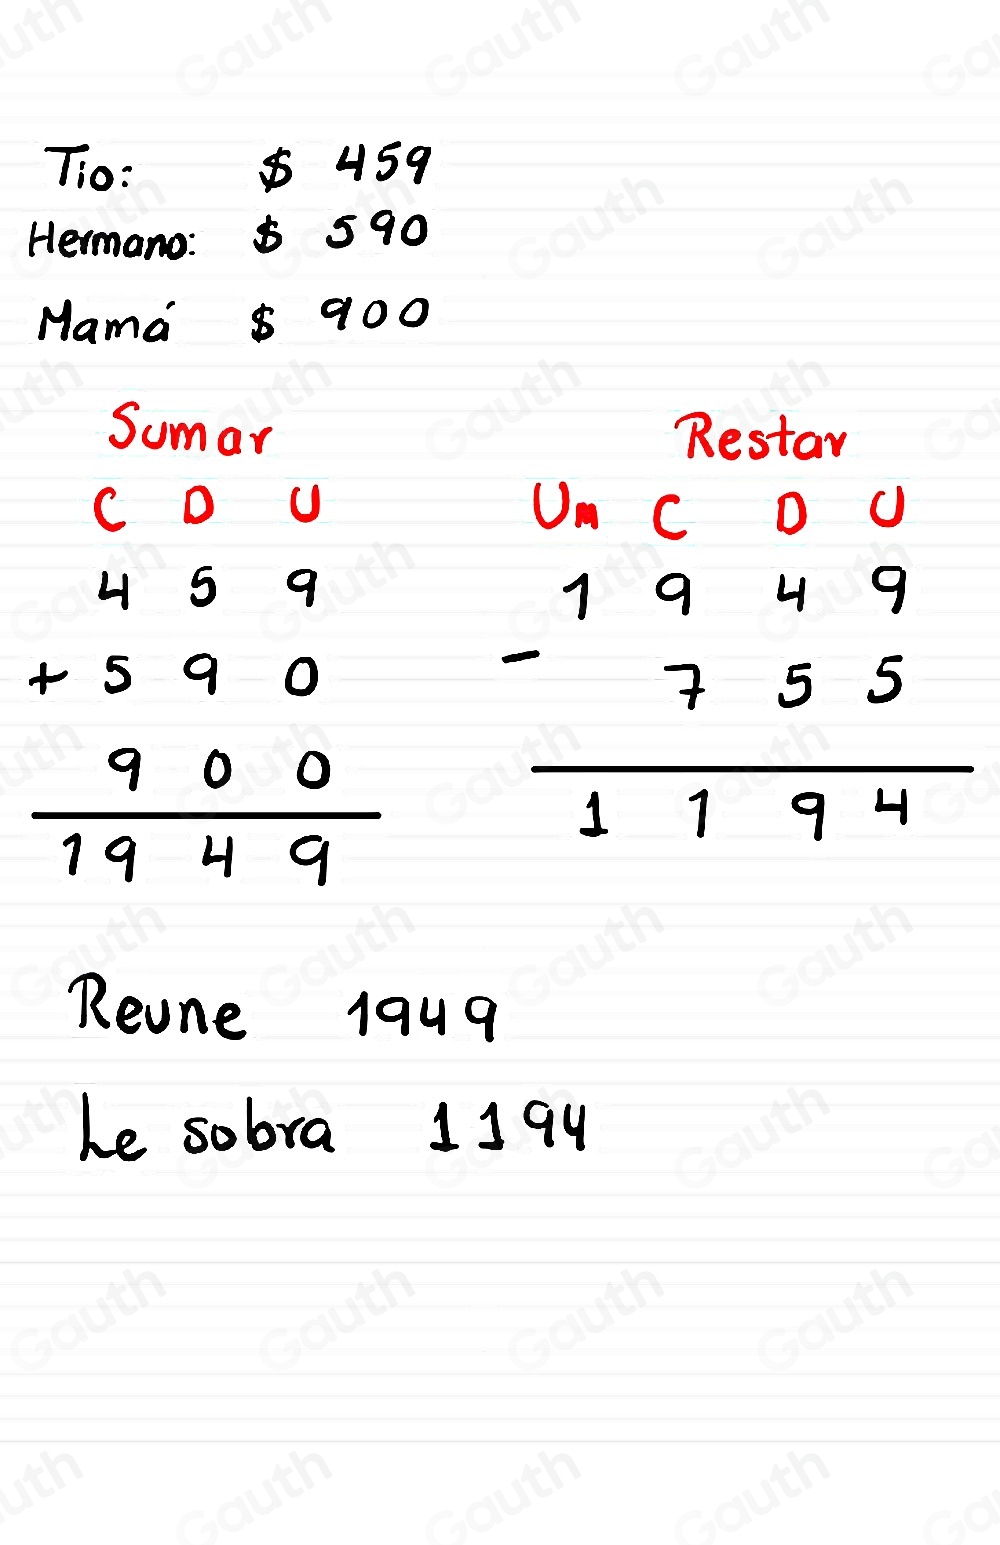 Tio: $ 459
Hermano: $ 590
Mamá $ 900
Sumar
C D U
4 5 9
+ 5 9 0
9 0 0
1 9 4 9
Restar
Um C D U
1 9 4 9
- 7 5 5
1 1 9 4
Reune 1949
Le sobra 1194